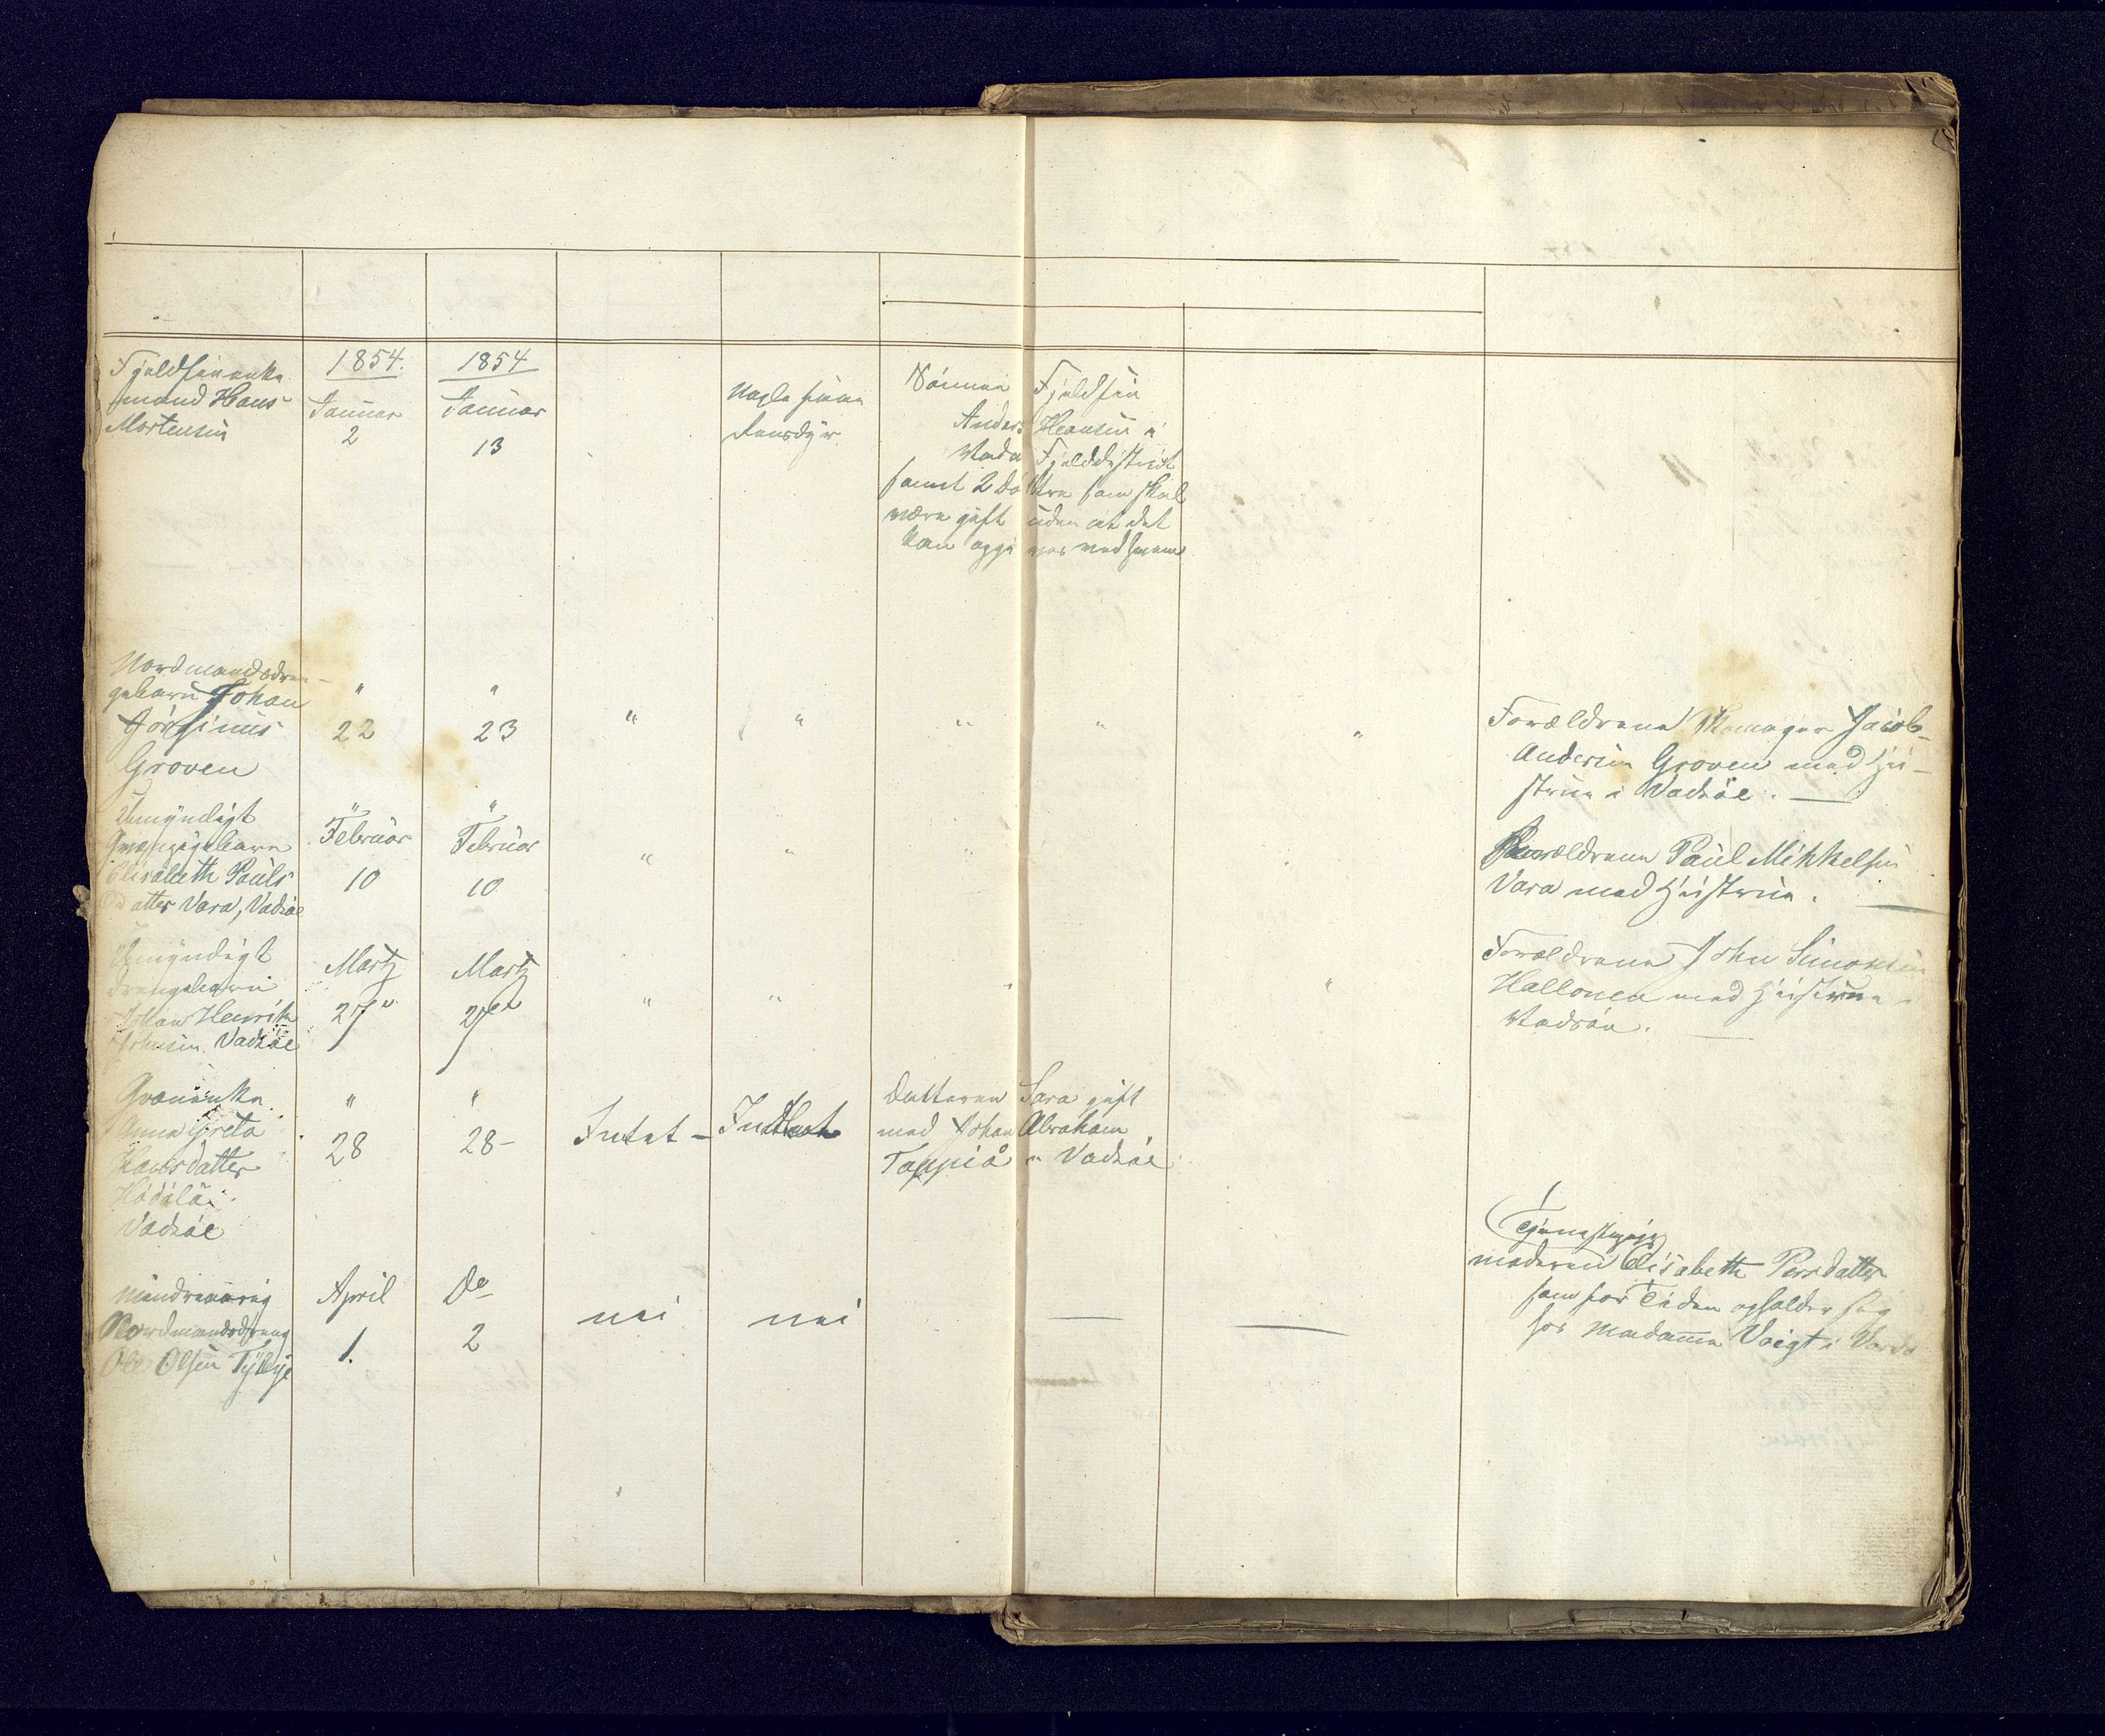 Fjeldfinenke
mand Hans
Mortensen
1854.
Januar
2
1854
Januar
13
Nogle faae
Rensdyr
Sönnen Fjeldfin
Anders Hansen i
Vadsø Fjelddistrict
samt 2 Døttre som skal
være gift uden at det
kan opgives med hvem
Nordmandsdren-
gebarn Johan
Jörginus
Groven
"
22
"
23
"
"
"
"
"
Forældrene Skomager Jacob
Andersen Groven med Hu-
strue i Vadsöe. —
Umyndigt
Qvænpigebarn
Elisabeth Pauls
Datter Vara, Vadsöe
"
Februar
10
"
Februar
10
"
"
Forældrene Paul Mikkelsen
Vara med Hustrue. —
Umyndigt
Drengebarn
Johan Henrik
Johnsen Vadsöe
Martz
27de
Martz
27de
"
"
"
"
Forældrene John Simonsen
Hallonen med Hustrue
Vadsöe. —
Qvænenke
Anna Greta
Hansdatter
Vadsöe
"
28
"
28 -
Intet -
Intet
Datteren Sara gift
med Johan Abraham
Tappio i Vadsöe
mindreaarig
Nordmandsdreng
Ole Olsen
April
1.
Do
2
nei
nei
—
—
(Tjenestepige
moderen Elisabeth Persdatter
som for Tiden opholder sig
hos Madame Voigt i Vardø